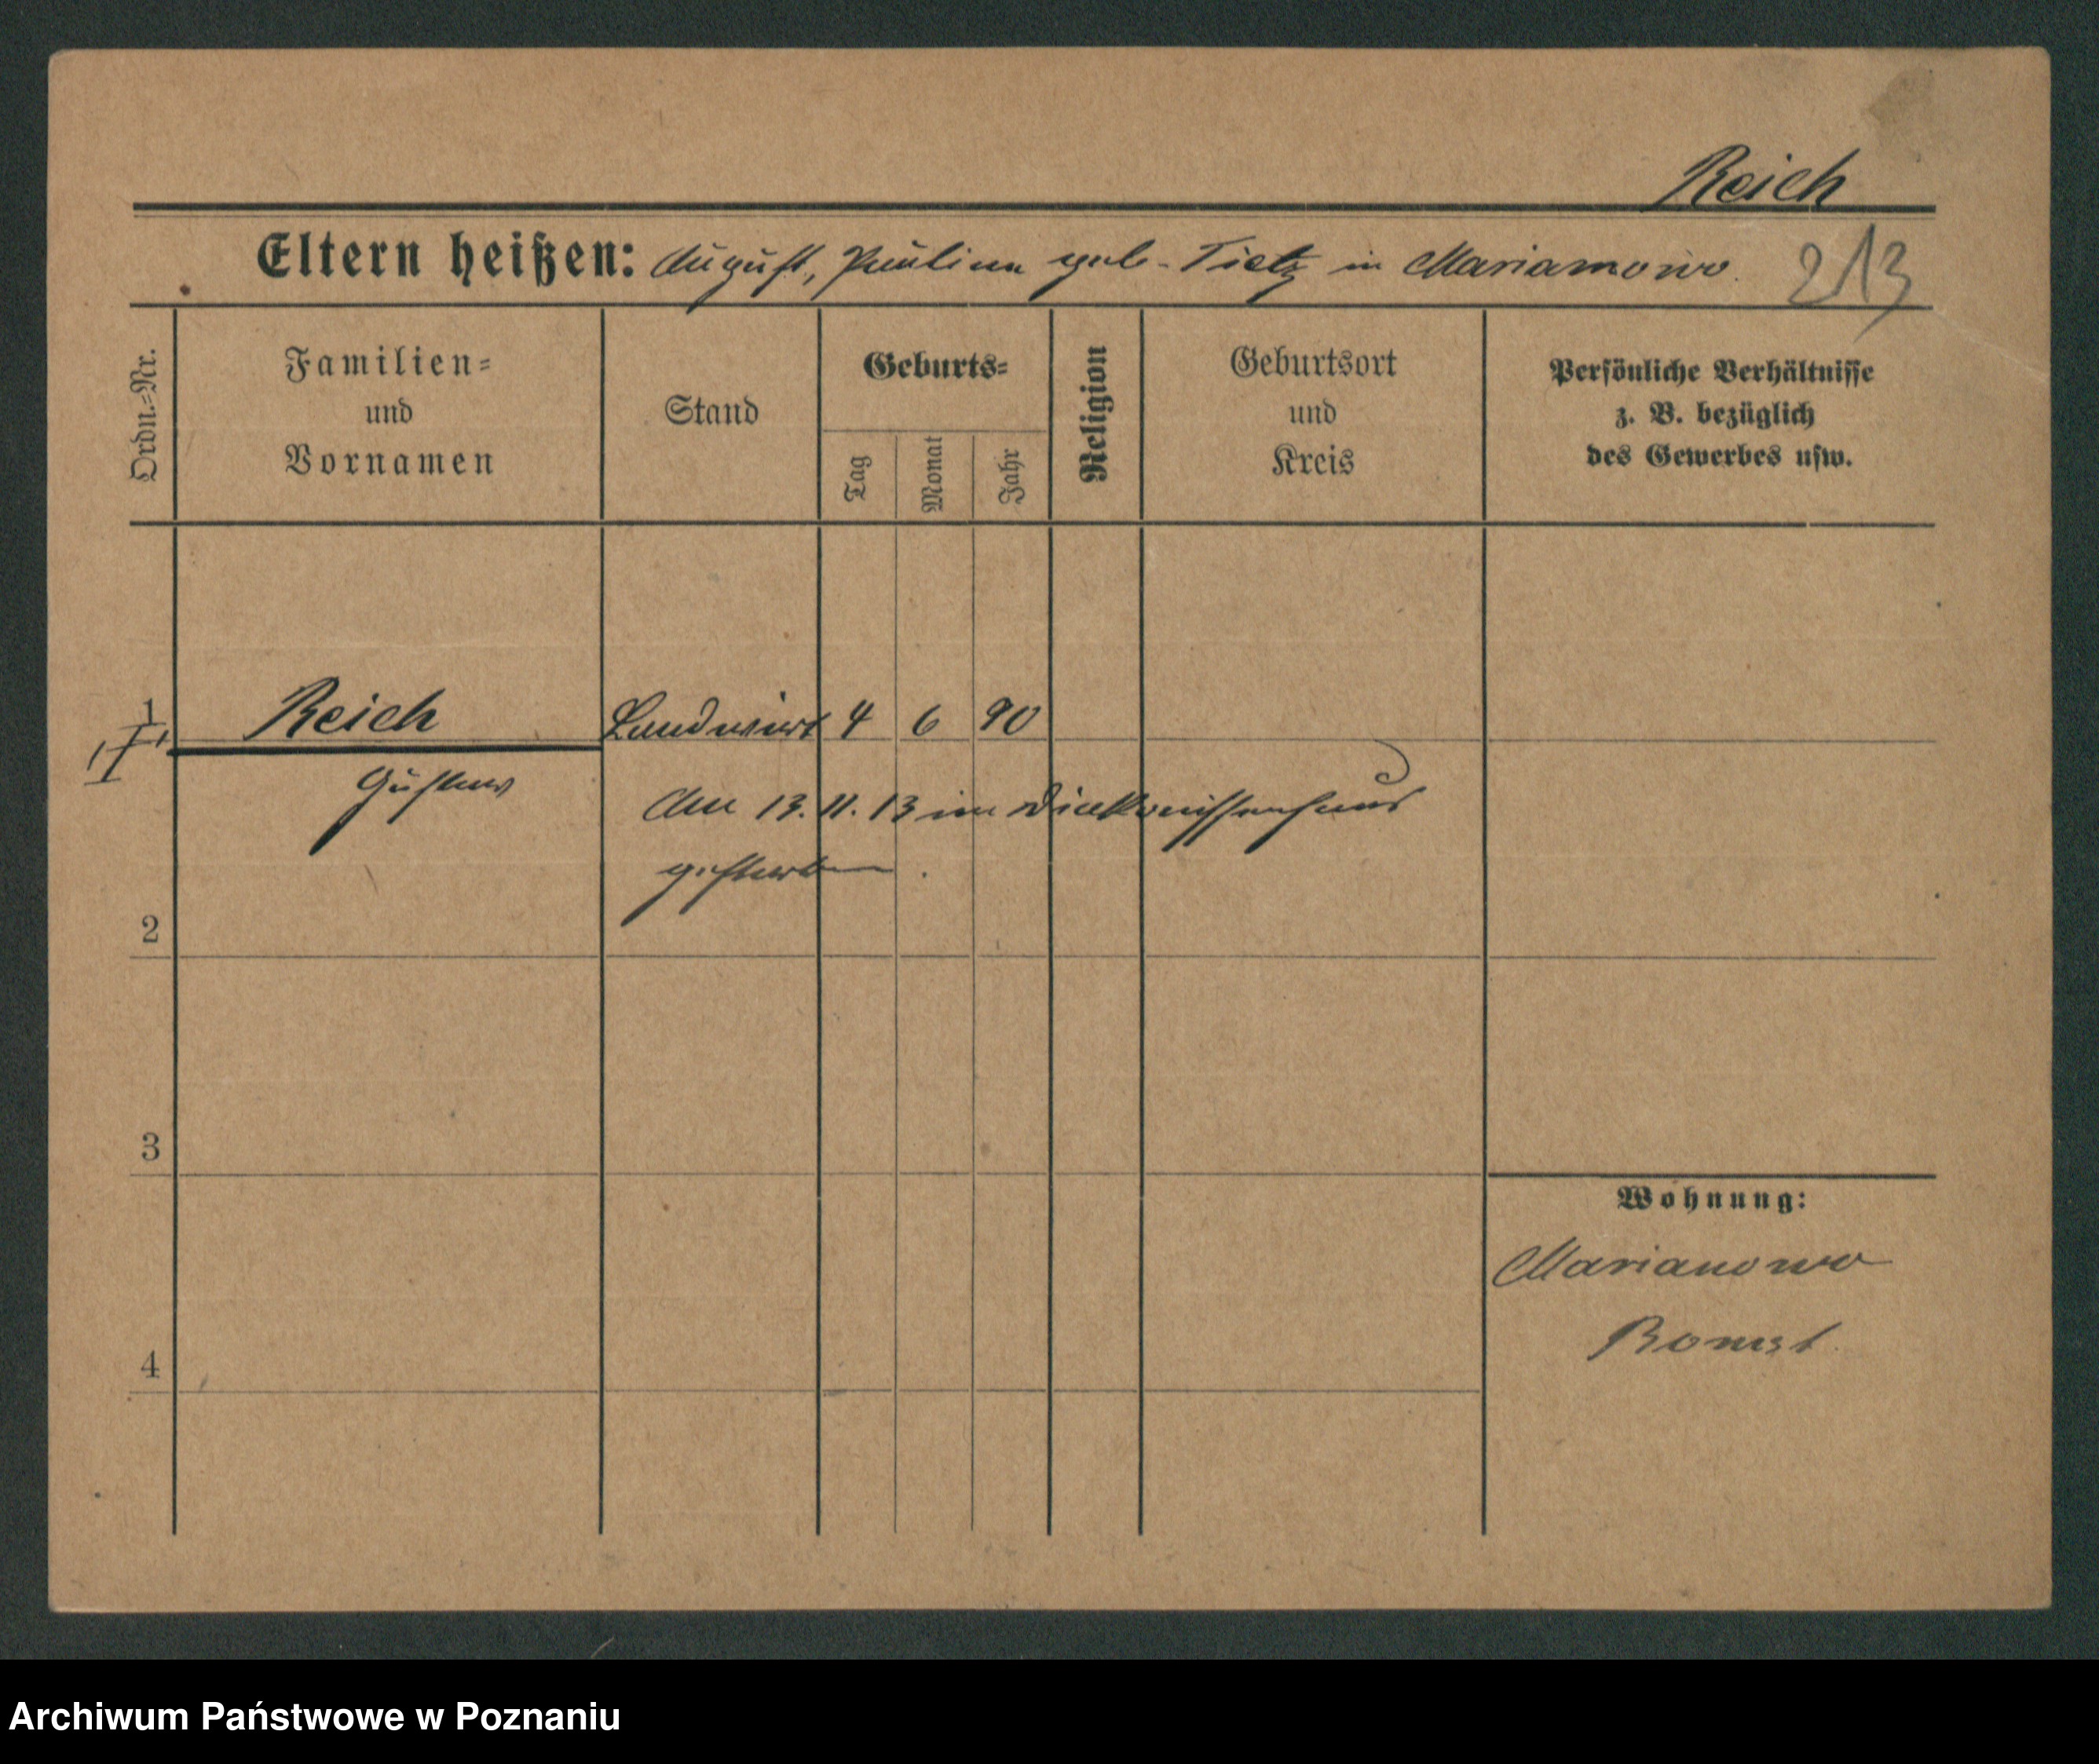 Reich
Eltern heißen: August, Pauline geb. Tietz in Mariamowo.
213
Ordn.=Nr.
Familien=
und
Vornamen
Stand
Geburts=
Tag
Monat
Jahr
Religion
Geburtsort
und
Kreis
Persönliche Verhältnisse
z. B. bezüglich
des Gewerbes usw.
1
Reich
Landwirt 4 6 90
Gustav
Am 13. 11. 13 im Diakonissenhaus
gestorben.
2
3
4
Wohnung:
Marianowo
Bomst.
Archiwum Państwowe w Poznaniu